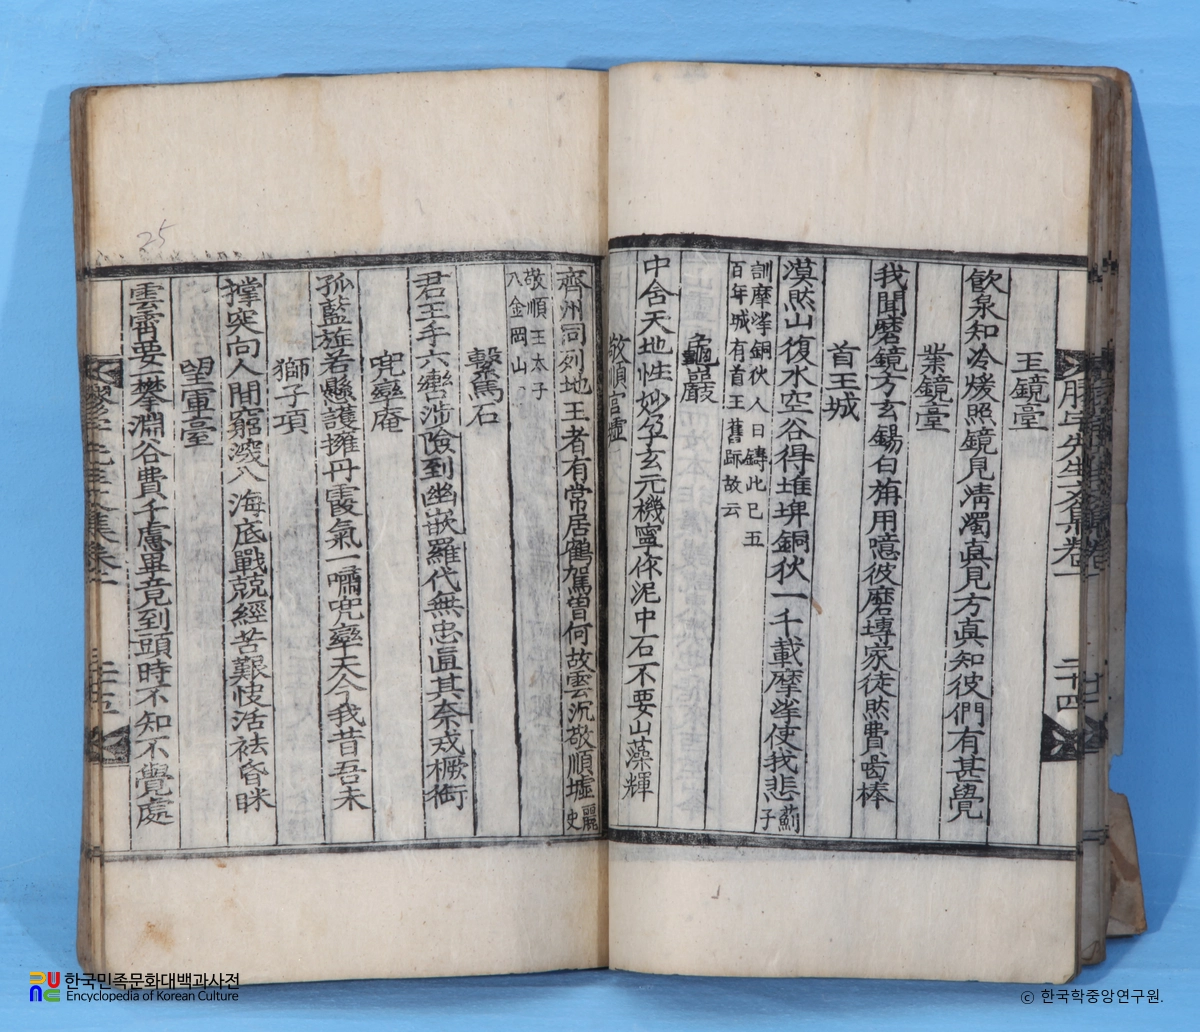 玉鏡臺
飮泉知冷煖照鏡見淸濁眞見方眞知彼們有甚覺
業鏡臺
我聞磨鏡方玄錫白旃用隱彼磨塼家徒然費喝棒
首王城
漠然山復水空谷得堆埤銅伏一千載摩挲使我悲薊子
訓摩挲銅伏人曰鑄此已五
百年城有首王舊跡故云
龜巖
中含天地性妙孕玄元機寧作泥中石不要山藻輝
敬順宮墟
齊州同列地王者有常居鶴駕曾何故雲沉敬順墟麗史
敬順王太子
入金岡山
繫馬石
君王手六轡涉險到幽嵌羅代無忠直其奈戎橛銜
兜率庵
孤藍旋若懸護擁丹霞氣一嘯兜率天今我昔吾未
獅子項
撑突向人間窮深入海底戰兢經苦艱快活祛昏眯
望軍臺
雲霄要一攀淵谷費千慮畢竟到頭時不知不覺處
先生文集卷一
二十四
二十五
25
한국민족문화대백과사전
Encyclopedia of Korean Culture
© 한국학중앙연구원.